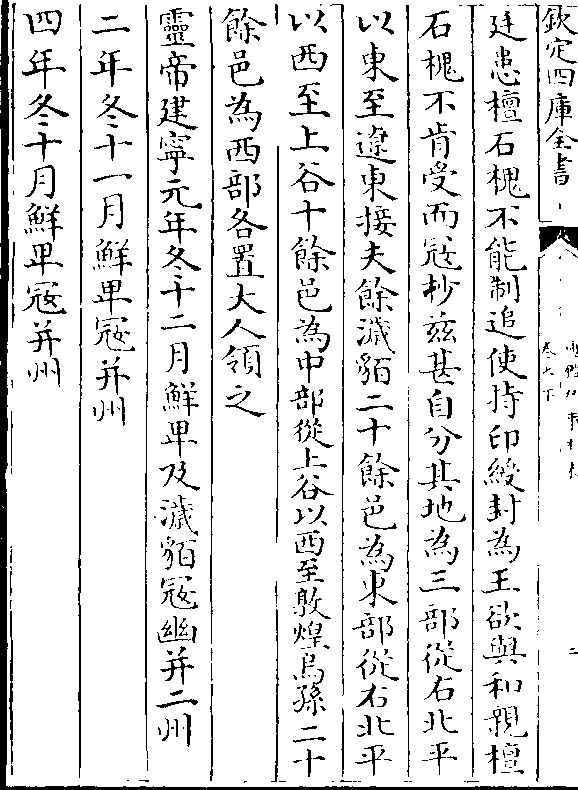 欽定四庫全書
廷患檀石槐不能制追使持印綬封為王欲與和親檀
石槐不肯受而寇抄兹甚自分其地為三部從右北平
以東至遼東接夫餘濊貊二十餘邑為東部從右北平
以西至上谷十餘邑為中部從上谷以西至敦煌烏孫二十
餘邑為西部各置大人領之
靈帝建寧元年冬十二月鮮卑及濊貊寇幽并二州
二年冬十一月鮮卑寇并州
四年冬十月鮮卑寇并州